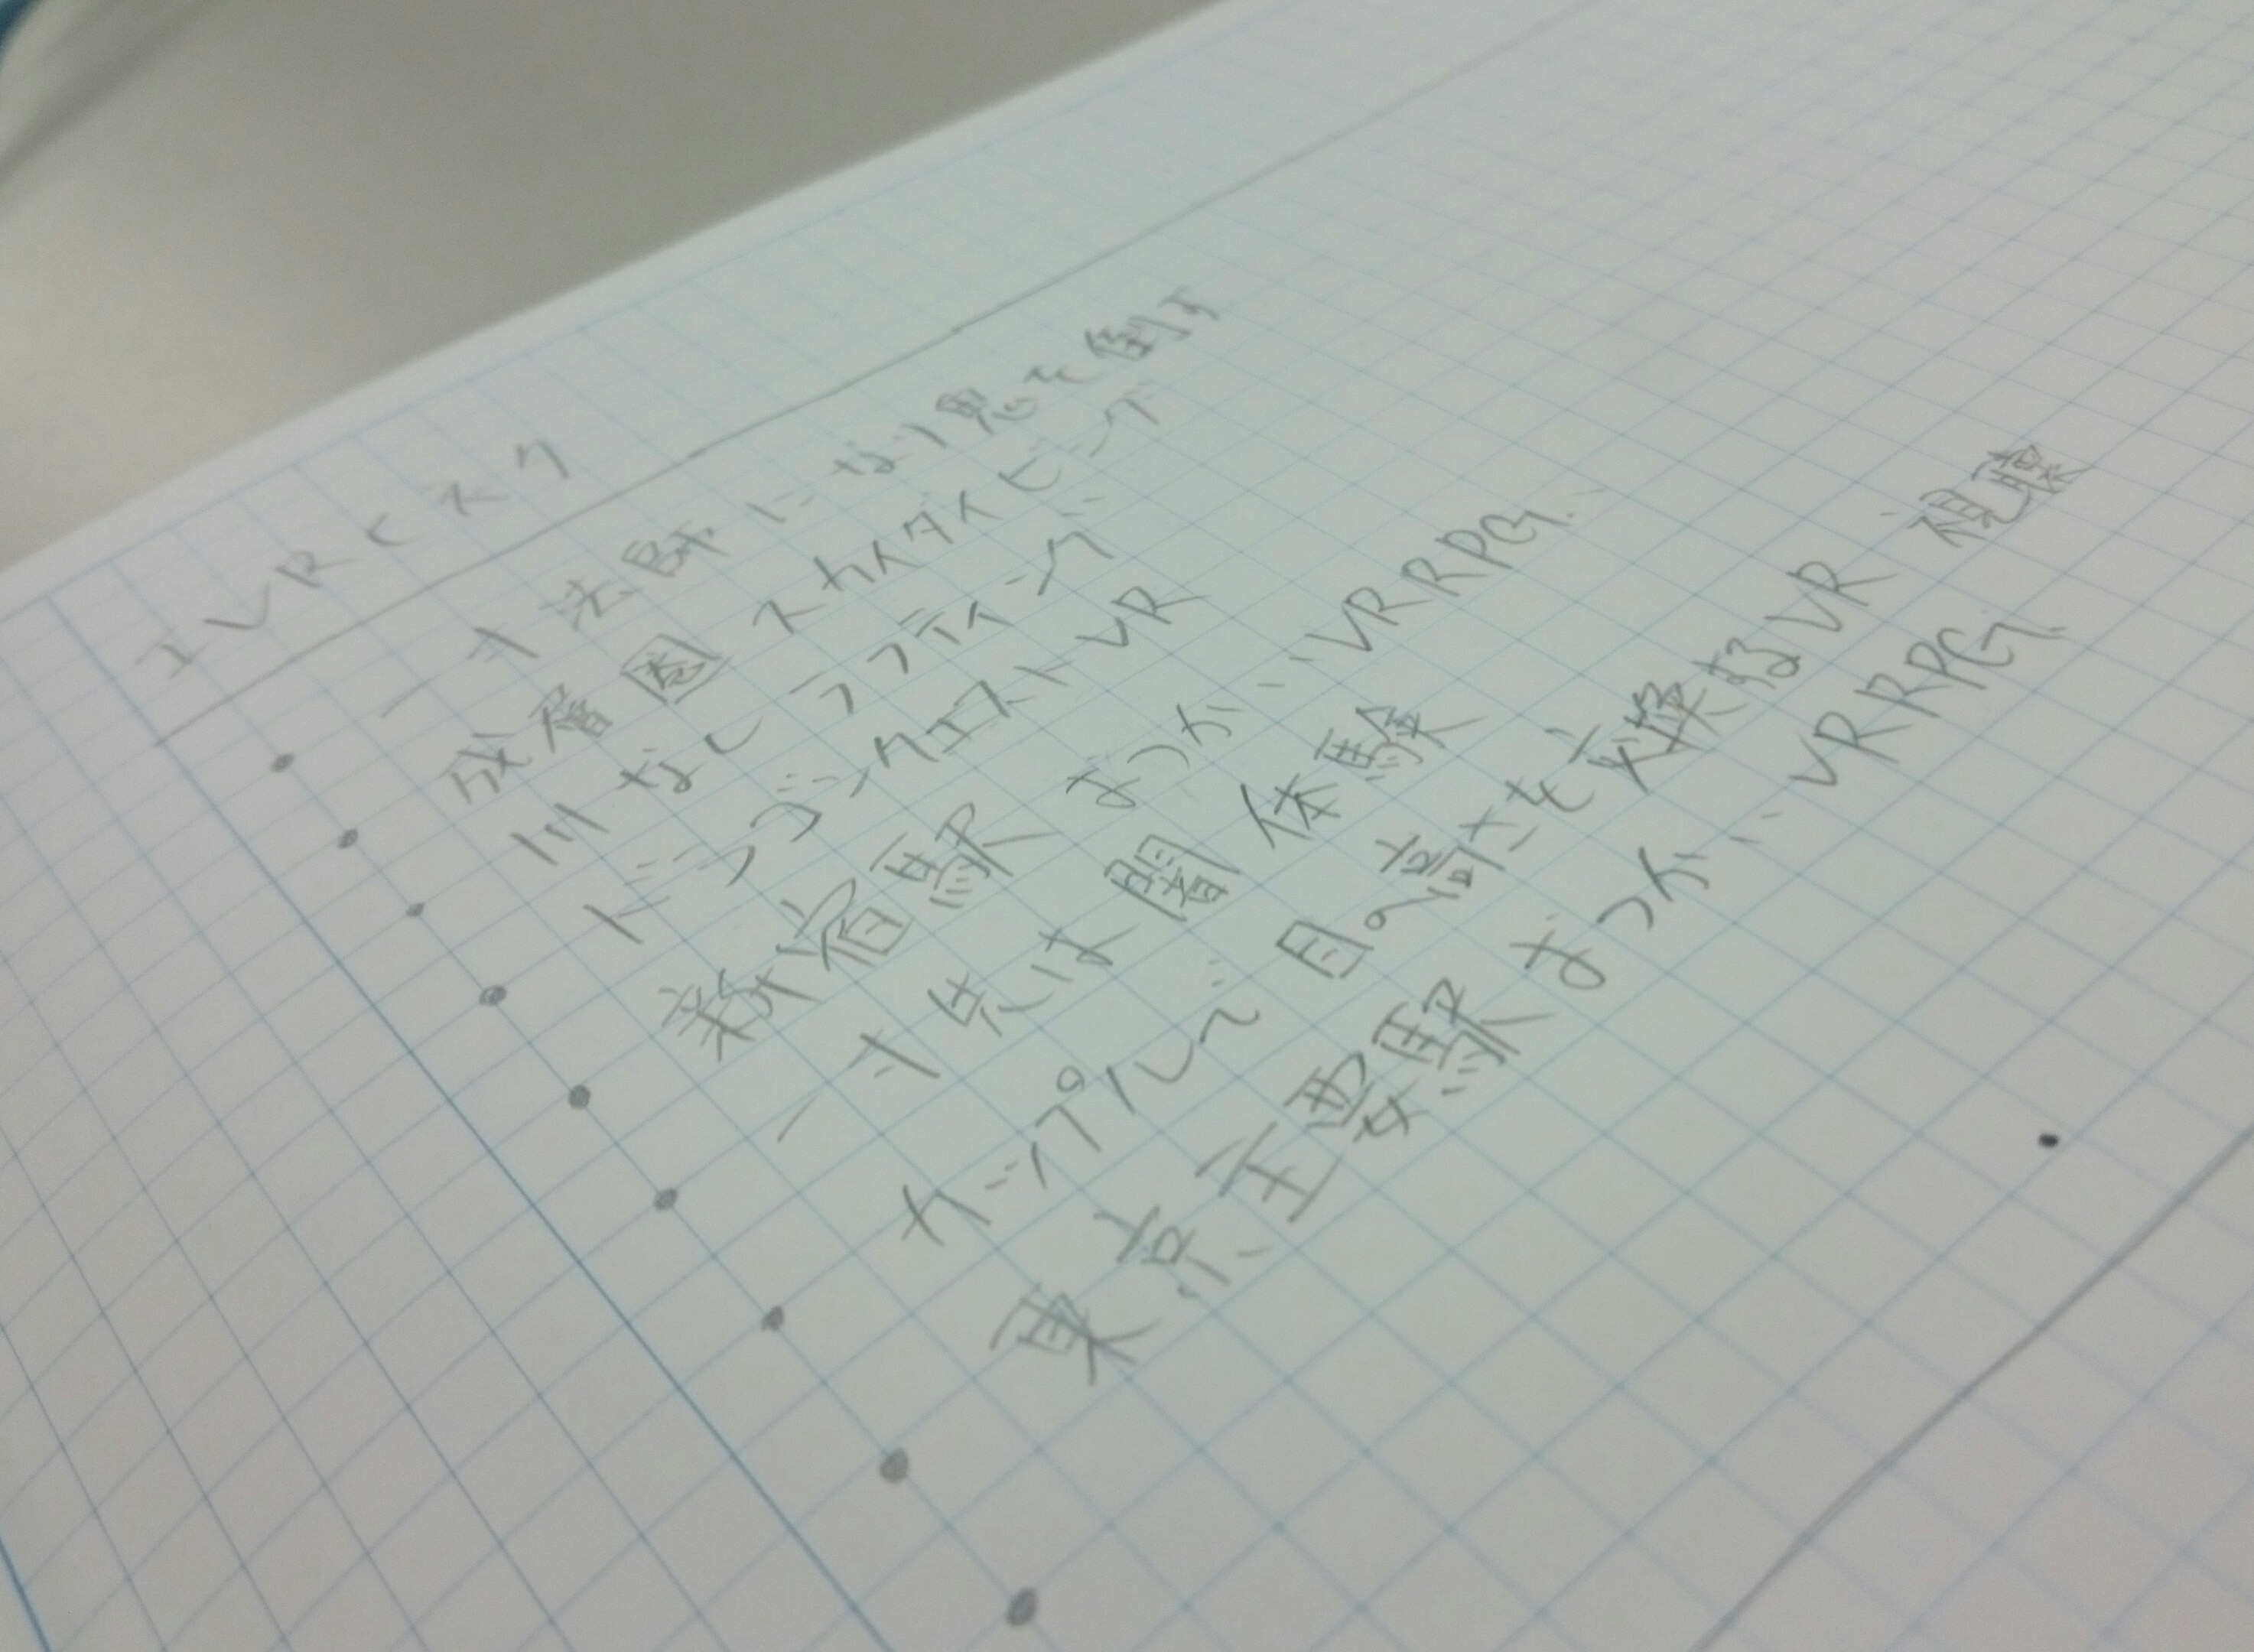 IVRC
・一寸法師になり鬼を倒す
・成層圏スカイダイビング
・川なしラフティング
・ドラゴンクエストVR
・新宿駅おつかいVRRPG
・一寸先は闇体験
・カップルで目の高さを交換するVR
・東京主要駅おつかいVRRPG